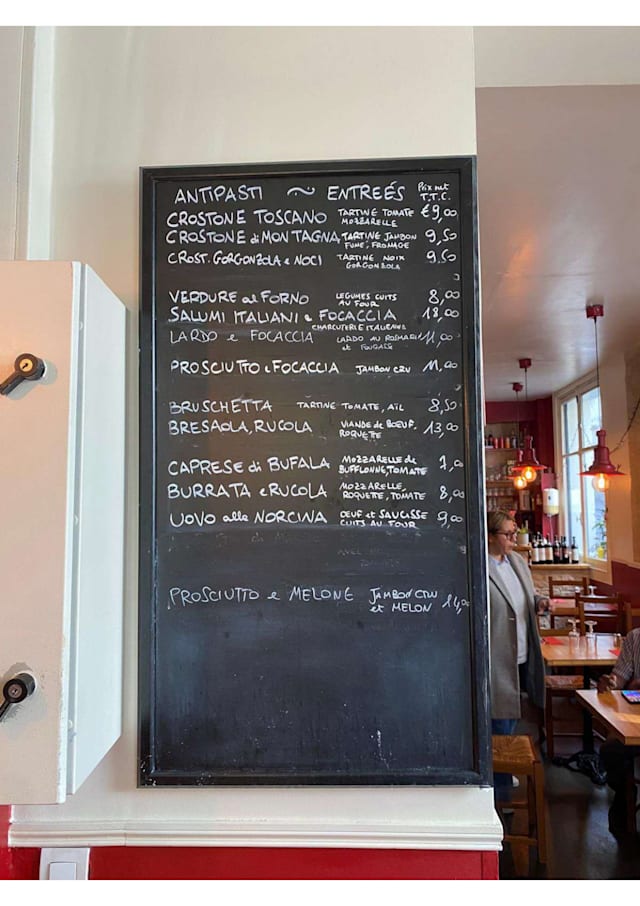 ANTIPASTI ~ ENTREÉS Prix net T.T.C.
CROSTONE TOSCANO TARTINE TOMATE MOZZARELLE €9,00
CROSTONE di MONTAGNA TARTINE JAMBON FUMÉ, FROMAGE 9,50
CROST. GORGONZOLA e NOCI TARTINE NOIX GORGONZOLA 9,50
VERDURE al FORNO LEGUMES CUITS AU FOUR 8,00
SALUMI ITALIANI e FOCACCIA CHARCUTERIE ITALIENNE 18,00
LARDO e FOCACCIA LARDO AU ROMARIN et FOUGASSE 11,00
PROSCIUTTO e FOCACCIA JAMBON CRU 11,00
BRUSCHETTA TARTINE TOMATE, AIL 8,50
BRESAOLA, RUCOLA VIANDE de BOEUF. ROQUETTE 13,00
CAPRESE di BUFALA MOZZARELLE de BUFFLONNE, TOMATE 7,00
BURRATA e RUCOLA MOZZARELLE, ROQUETTE, TOMATE 8,00
UOVO alla NORCINA OEUF et SAUCISSE CUITS AU FOUR 9,00
PROSCIUTTO e MELONE JAMBON CRU et MELON 14,00